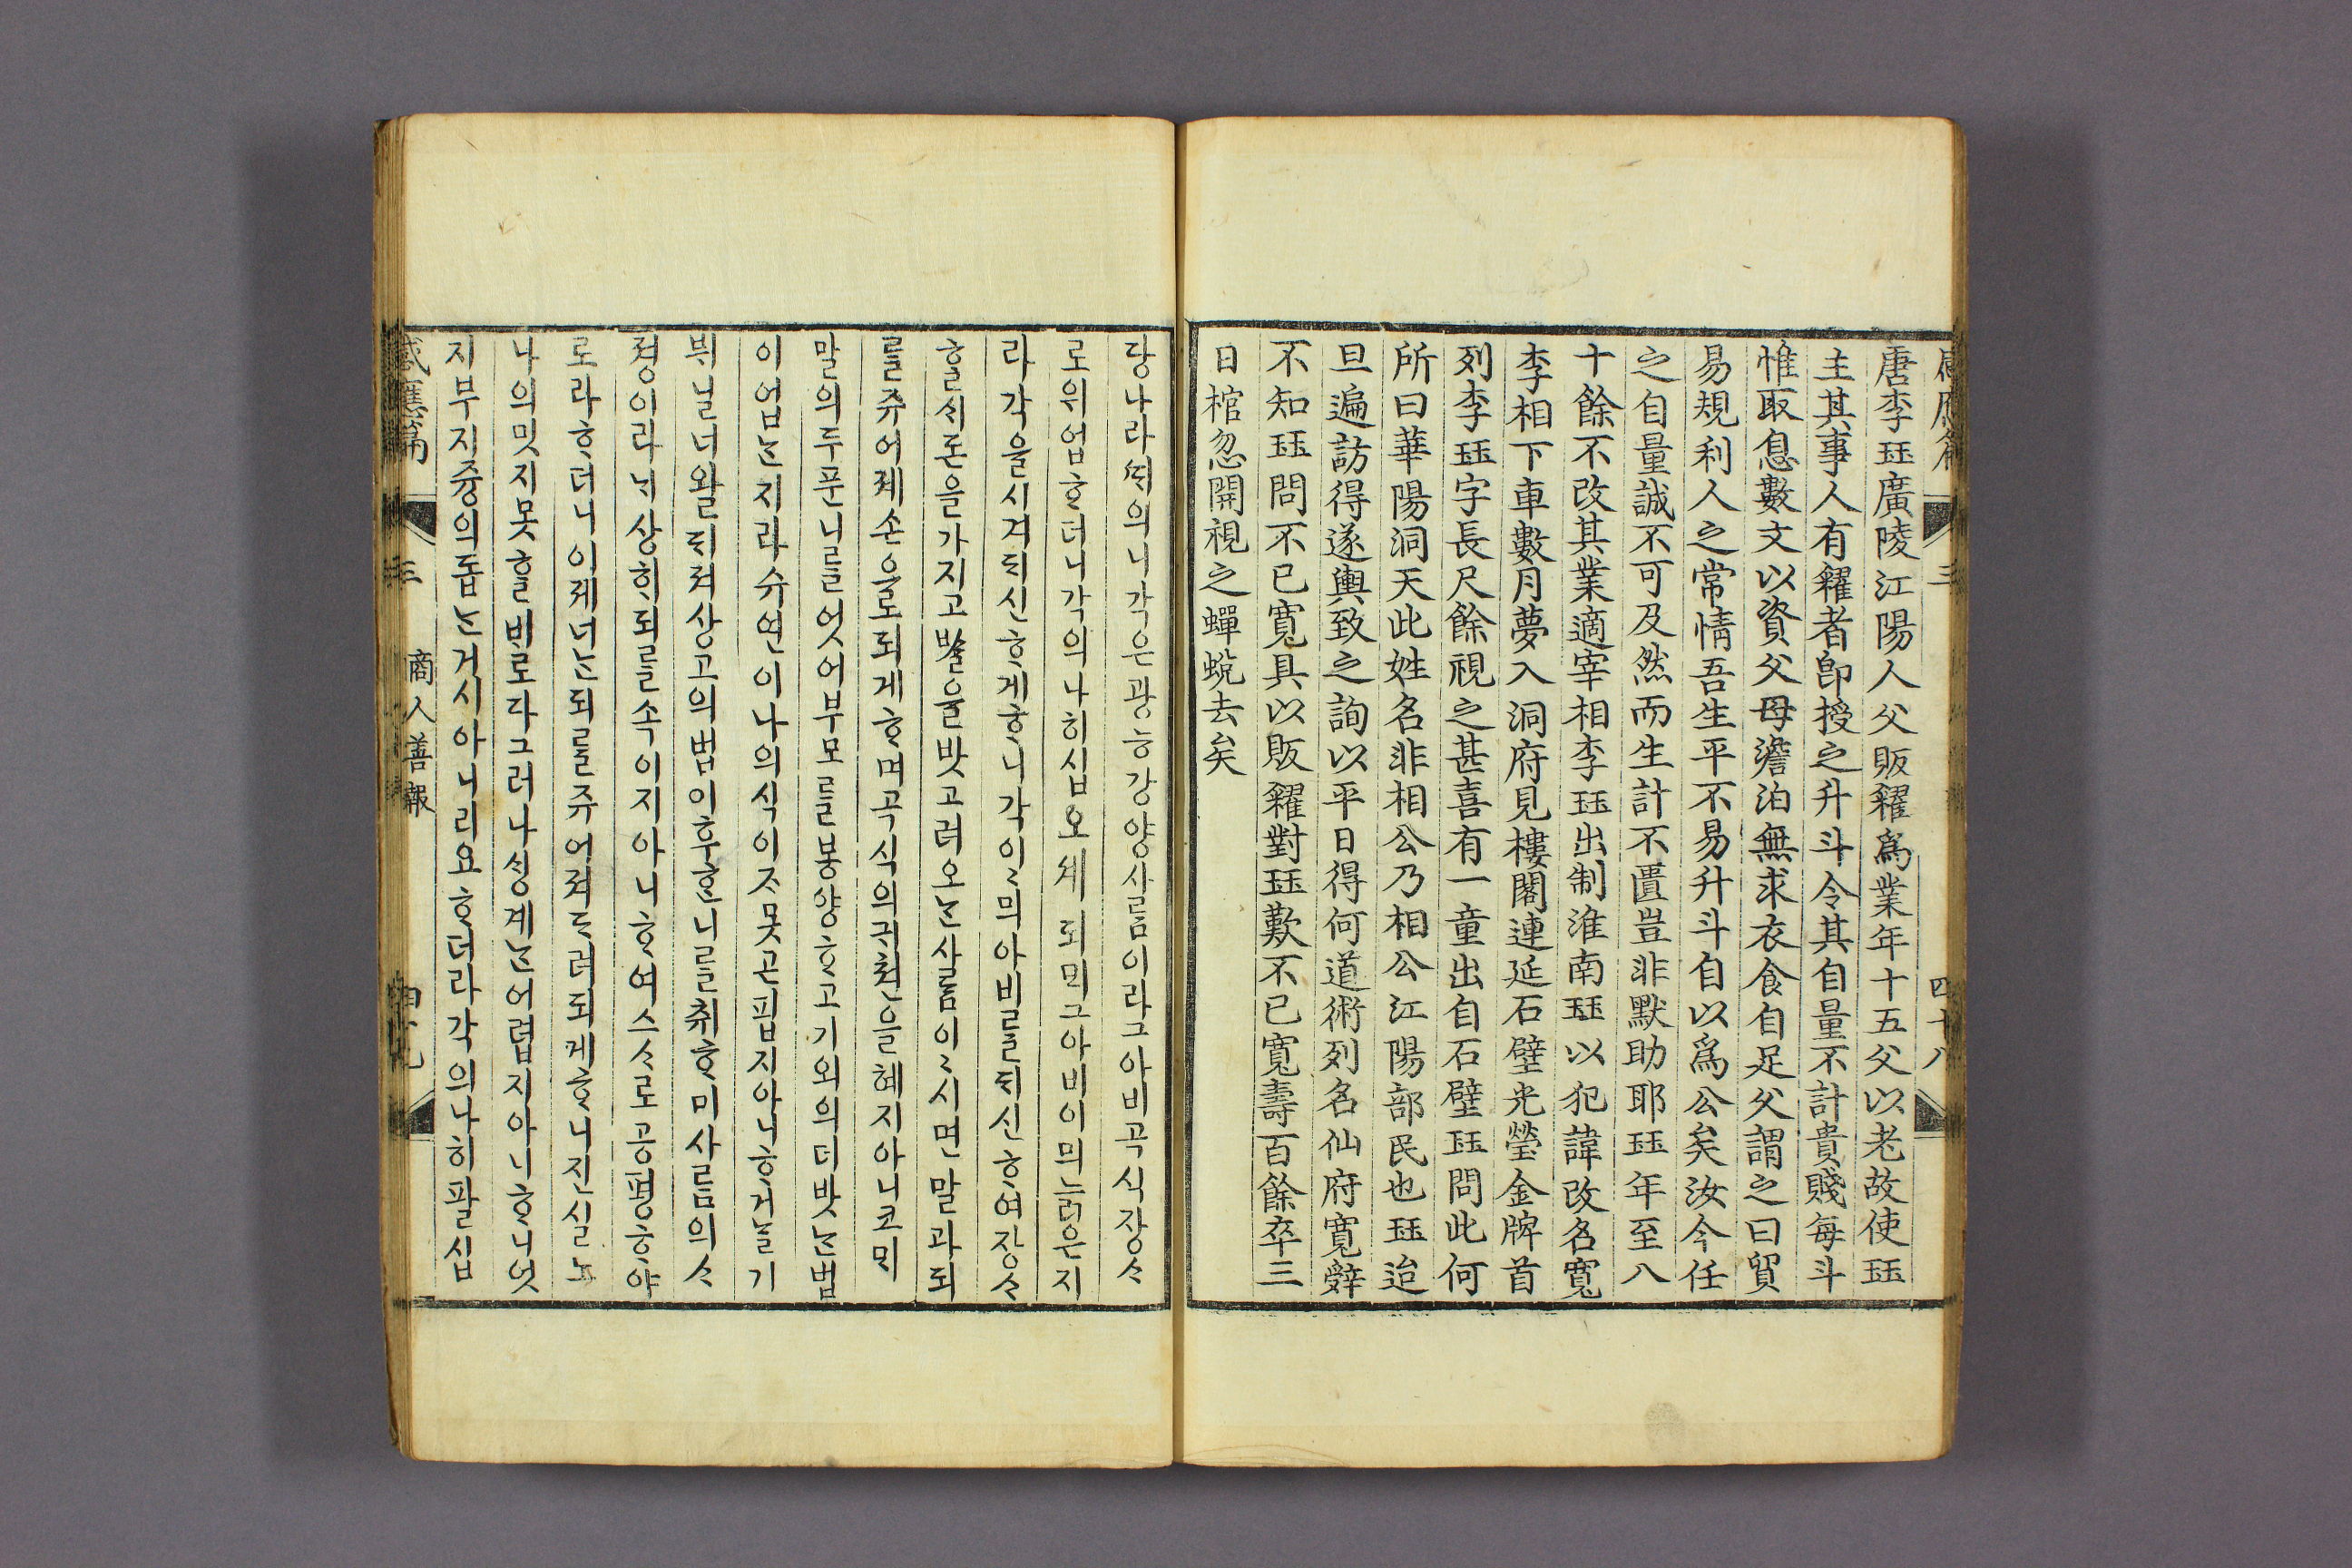 感應篇 三 四十八
唐李珏廣陵江陽人父販糴爲業年十五父以老故使珏
主其事人有糴者卽授之升斗令其自量不計貴賤每斗
惟取息數文以資父母澹泊無求衣食自足父謂之曰貿
易規利人之常情吾生平不易升斗自以爲公矣汝今任
之自量誠不可及然而生計不匱豈非默助耶珏年至八
十餘不改其業適宰相李珏出制淮南珏以犯諱改名寬
李相下車數月夢入洞府見樓閣連延石壁光瑩金牌首
列李珏字長尺餘視之甚喜有一童出自石壁珏問此何
所曰華陽洞天此姓名非相公乃相公江陽部民也珏迨
旦遍訪得遂輿致之詢以平日得何道術列名仙府寬辤
不知珏問不已寬具以販糴對珏歎不已寬壽百餘卒三
日棺忽開視之蟬蛻去矣
당나라ᄯᆡ의니각은광능강양사ᄅᆞᆷ이라그아비곡식쟝ᄉᆞ
로위업ᄒᆞ더니각의나히십오셰되ᄆᆡ그아비이믜늙은지
라각을시겨ᄃᆡ신ᄒᆞ게ᄒᆞ니각이〻믜아비ᄅᆞᆯᄃᆡ신ᄒᆞ여쟝ᄉᆞ
ᄒᆞᆯᄉᆡ돈을가지고ᄡᆞᆯ을밧고러오ᄂᆞᆫ사ᄅᆞᆷ이〻시면말과되
ᄅᆞᆯ쥬어졔손으로되게ᄒᆞ며곡식의귀쳔을혜지아니코ᄆᆡ
말의두푼니ᄅᆞᆯ엇어부모ᄅᆞᆯ봉양ᄒᆞ고기외의더밧ᄂᆞᆫ법
이업ᄂᆞᆫ지라슈연이나의식이ᄌᆞ못곤핍지아니ᄒᆞ거ᄂᆞᆯ기
뷔닐너왈ᄃᆡ져샹고의법이후ᄒᆞᆫ니ᄅᆞᆯ취ᄒᆞ미사ᄅᆞᆷ의ᄉᆞ
졍이라ᄂᆡ상히되ᄅᆞᆯ속이지아니ᄒᆞ여스ᄉᆞ로공평ᄒᆞ야
로라ᄒᆞ더니이졔너ᄂᆞᆫ되ᄅᆞᆯ쥬어져ᄃᆞ려되게ᄒᆞ니진실노
나의밋지못ᄒᆞᆯ비로다그러나ᄉᆡᆼ계ᄂᆞᆫ어렵지아니ᄒᆞ니엇
지부지즁의돕ᄂᆞᆫ거시아니리요ᄒᆞ더라각의나히팔십
感應篇 三 商人善報 四十九